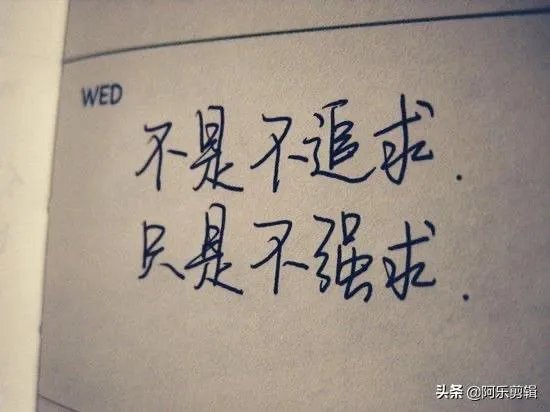 WED
不是不追求.
只是不强求.
头条 @阿乐剪辑